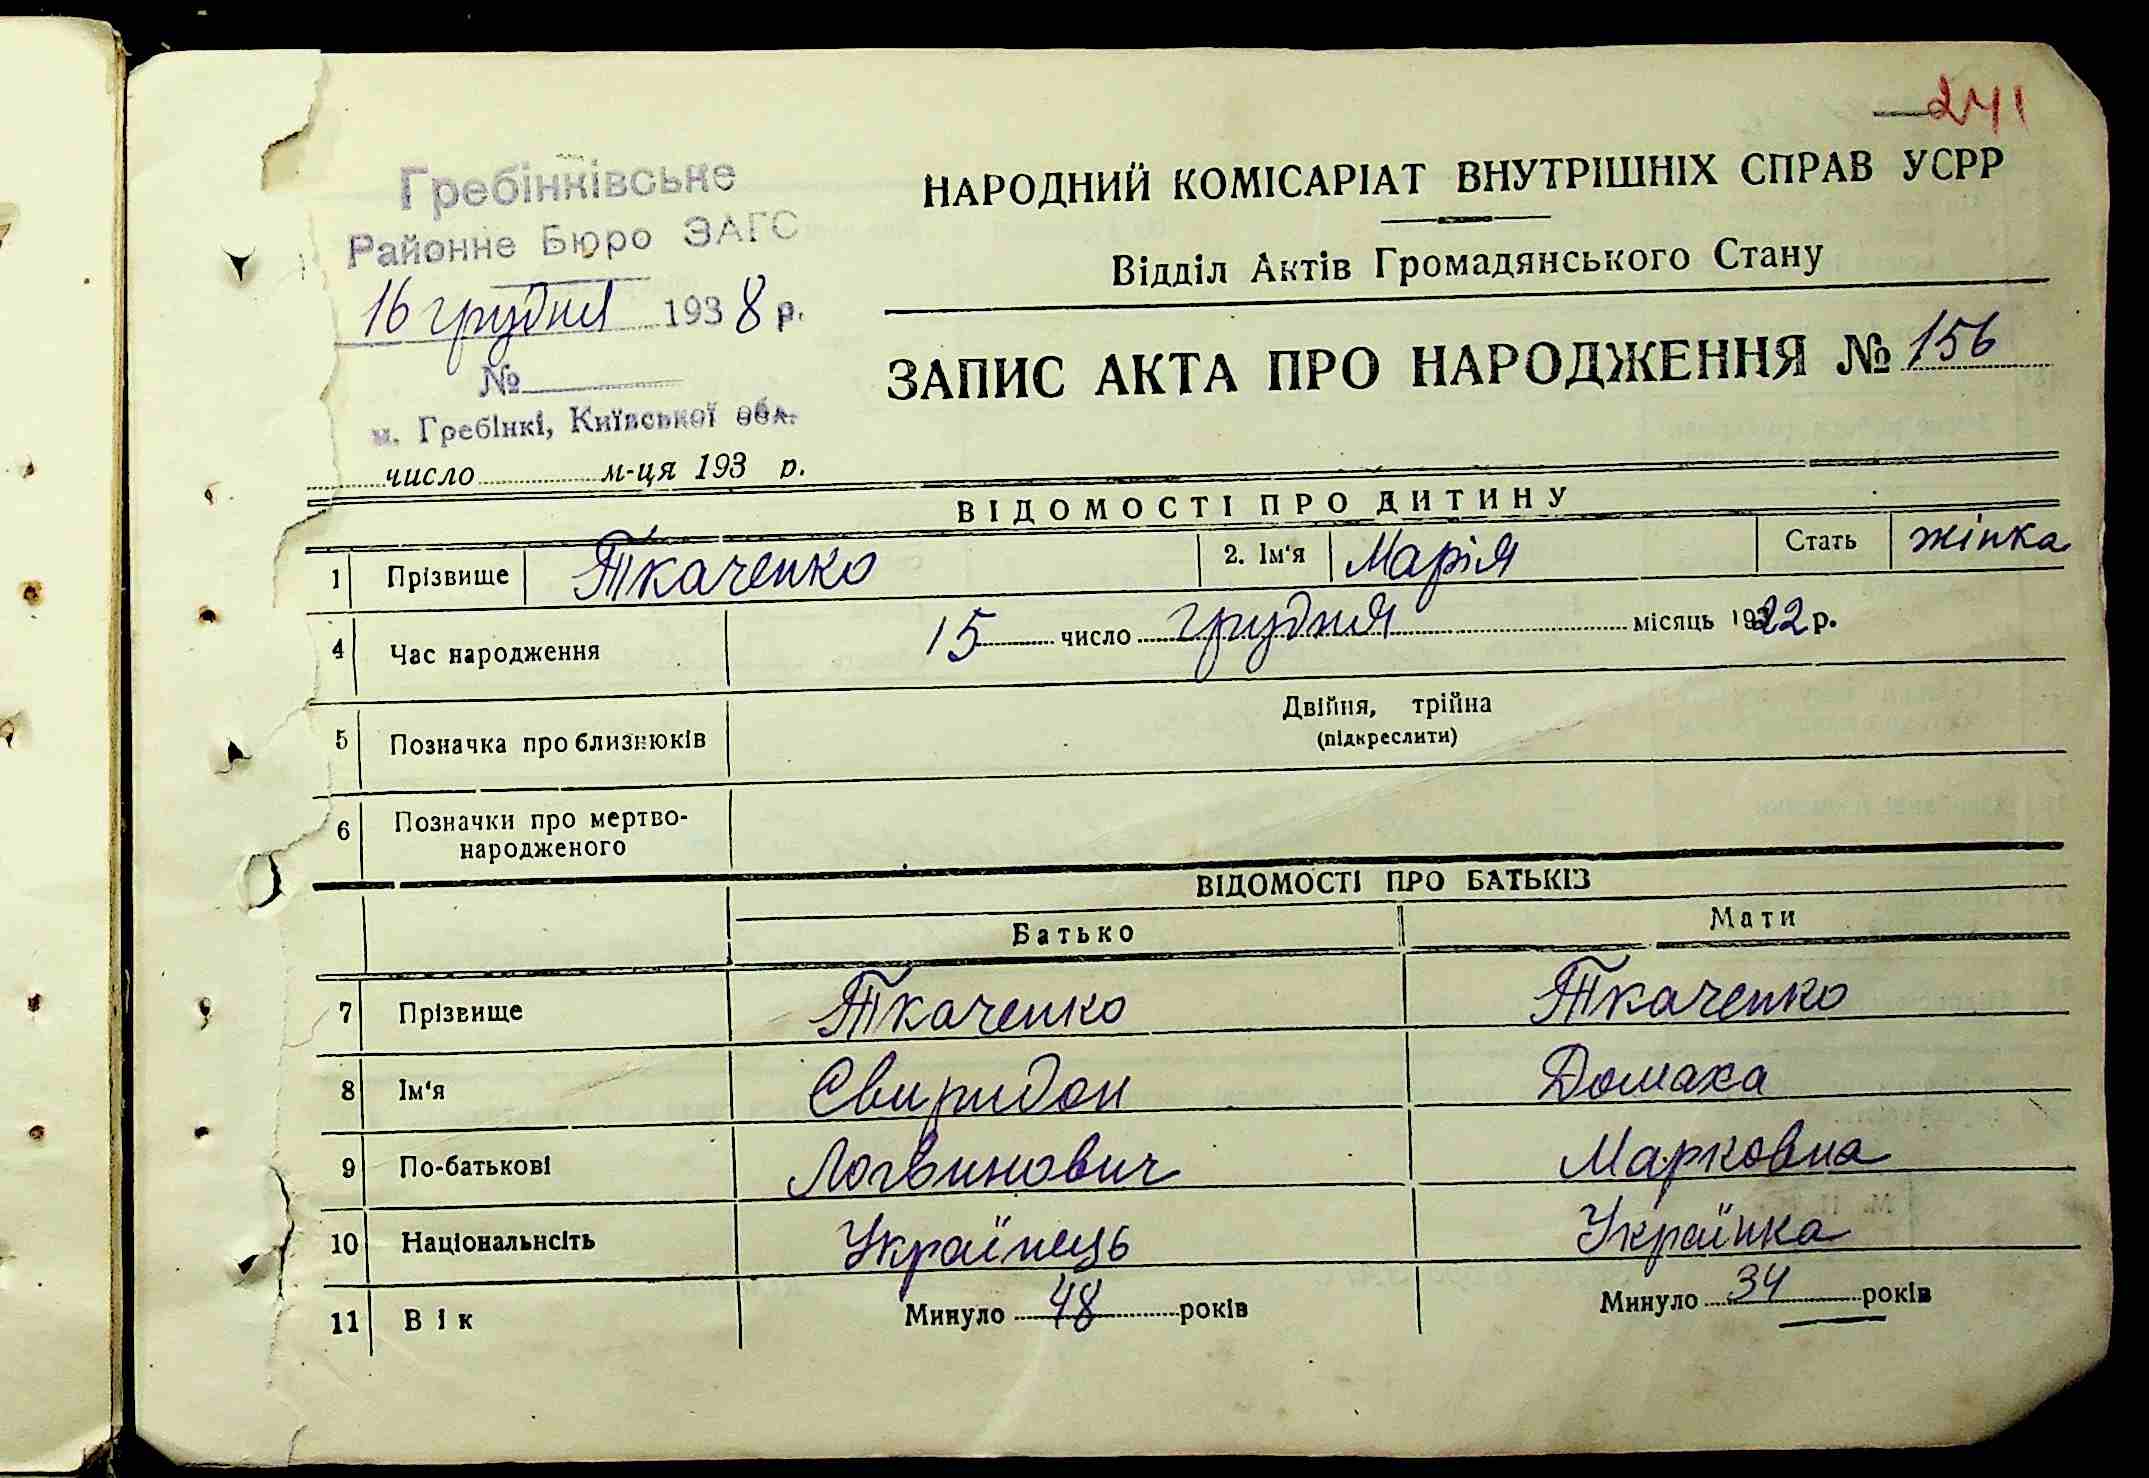 241
Гребінківське
Районне Бюро ЗАГС
16 грудня 1938 р.
№
м. Гребінкі, Київської обл.
число м-ця 193 р.
НАРОДНИЙ КОМІСАРІАТ ВНУТРІШНІХ СПРАВ УСРР
Відділ Актів Громадянського Стану
ЗАПИС АКТА ПРО НАРОДЖЕННЯ № 156
ВІДОМОСТІ ПРО ДИТИНУ
1 Прізвище Ткаченко 2. Ім'я Марія Стать жінка
4 Час народження 15 число грудня місяць 1922 р.
5 Позначка про близнюків Двійня, трійна
(підкреслити)
6 Позначки про мертво-
народженого
ВІДОМОСТІ ПРО БАТЬКІЗ
Батько Мати
7 Прізвище Ткаченко Ткаченко
8 Ім'я Свиридон Домаха
9 По-батькові Логвинович Марковна
10 Національнсіть Українець Українка
11 Вік Минуло 48 років Минуло 34 років